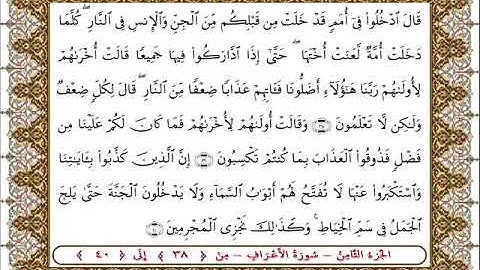 قَالَ ٱدْخُلُوا۟ فِىٓ أُمَمٍ قَدْ خَلَتْ مِن قَبْلِكُم مِّنَ ٱلْجِنِّ وَٱلْإِنسِ فِى ٱلنَّارِ ۖ كُلَّمَا
دَخَلَتْ أُمَّةٌ لَّعَنَتْ أُخْتَهَا ۖ حَتَّىٰٓ إِذَا ٱدَّارَكُوا۟ فِيهَا جَمِيعًا قَالَتْ أُخْرَىٰهُمْ
لِأُولَىٰهُمْ رَبَّنَا هَـٰٓؤُلَآءِ أَضَلُّونَا فَـَٔاتِهِمْ عَذَابًا ضِعْفًا مِّنَ ٱلنَّارِ ۖ قَالَ لِكُلٍّ ضِعْفٌ
وَلَـٰكِن لَّا تَعْلَمُونَ ٣٨ وَقَالَتْ أُولَىٰهُمْ لِأُخْرَىٰهُمْ فَمَا كَانَ لَكُمْ عَلَيْنَا مِن
فَضْلٍ فَذُوقُوا۟ ٱلْعَذَابَ بِمَا كُنتُمْ تَكْسِبُونَ ٣٩ إِنَّ ٱلَّذِينَ كَذَّبُوا۟ بِـَٔايَـٰتِنَا
وَٱسْتَكْبَرُوا۟ عَنْهَا لَا تُفَتَّحُ لَهُمْ أَبْوَٰبُ ٱلسَّمَآءِ وَلَا يَدْخُلُونَ ٱلْجَنَّةَ حَتَّىٰ يَلِجَ
ٱلْجَمَلُ فِى سَمِّ ٱلْخِيَاطِ ۚ وَكَذَٰلِكَ نَجْزِى ٱلْمُجْرِمِينَ ٤٠
الجزء الثامن - سورة الأعراف - من ﴿ ٣٨ ﴾ إلى ﴿ ٤٠ ﴾